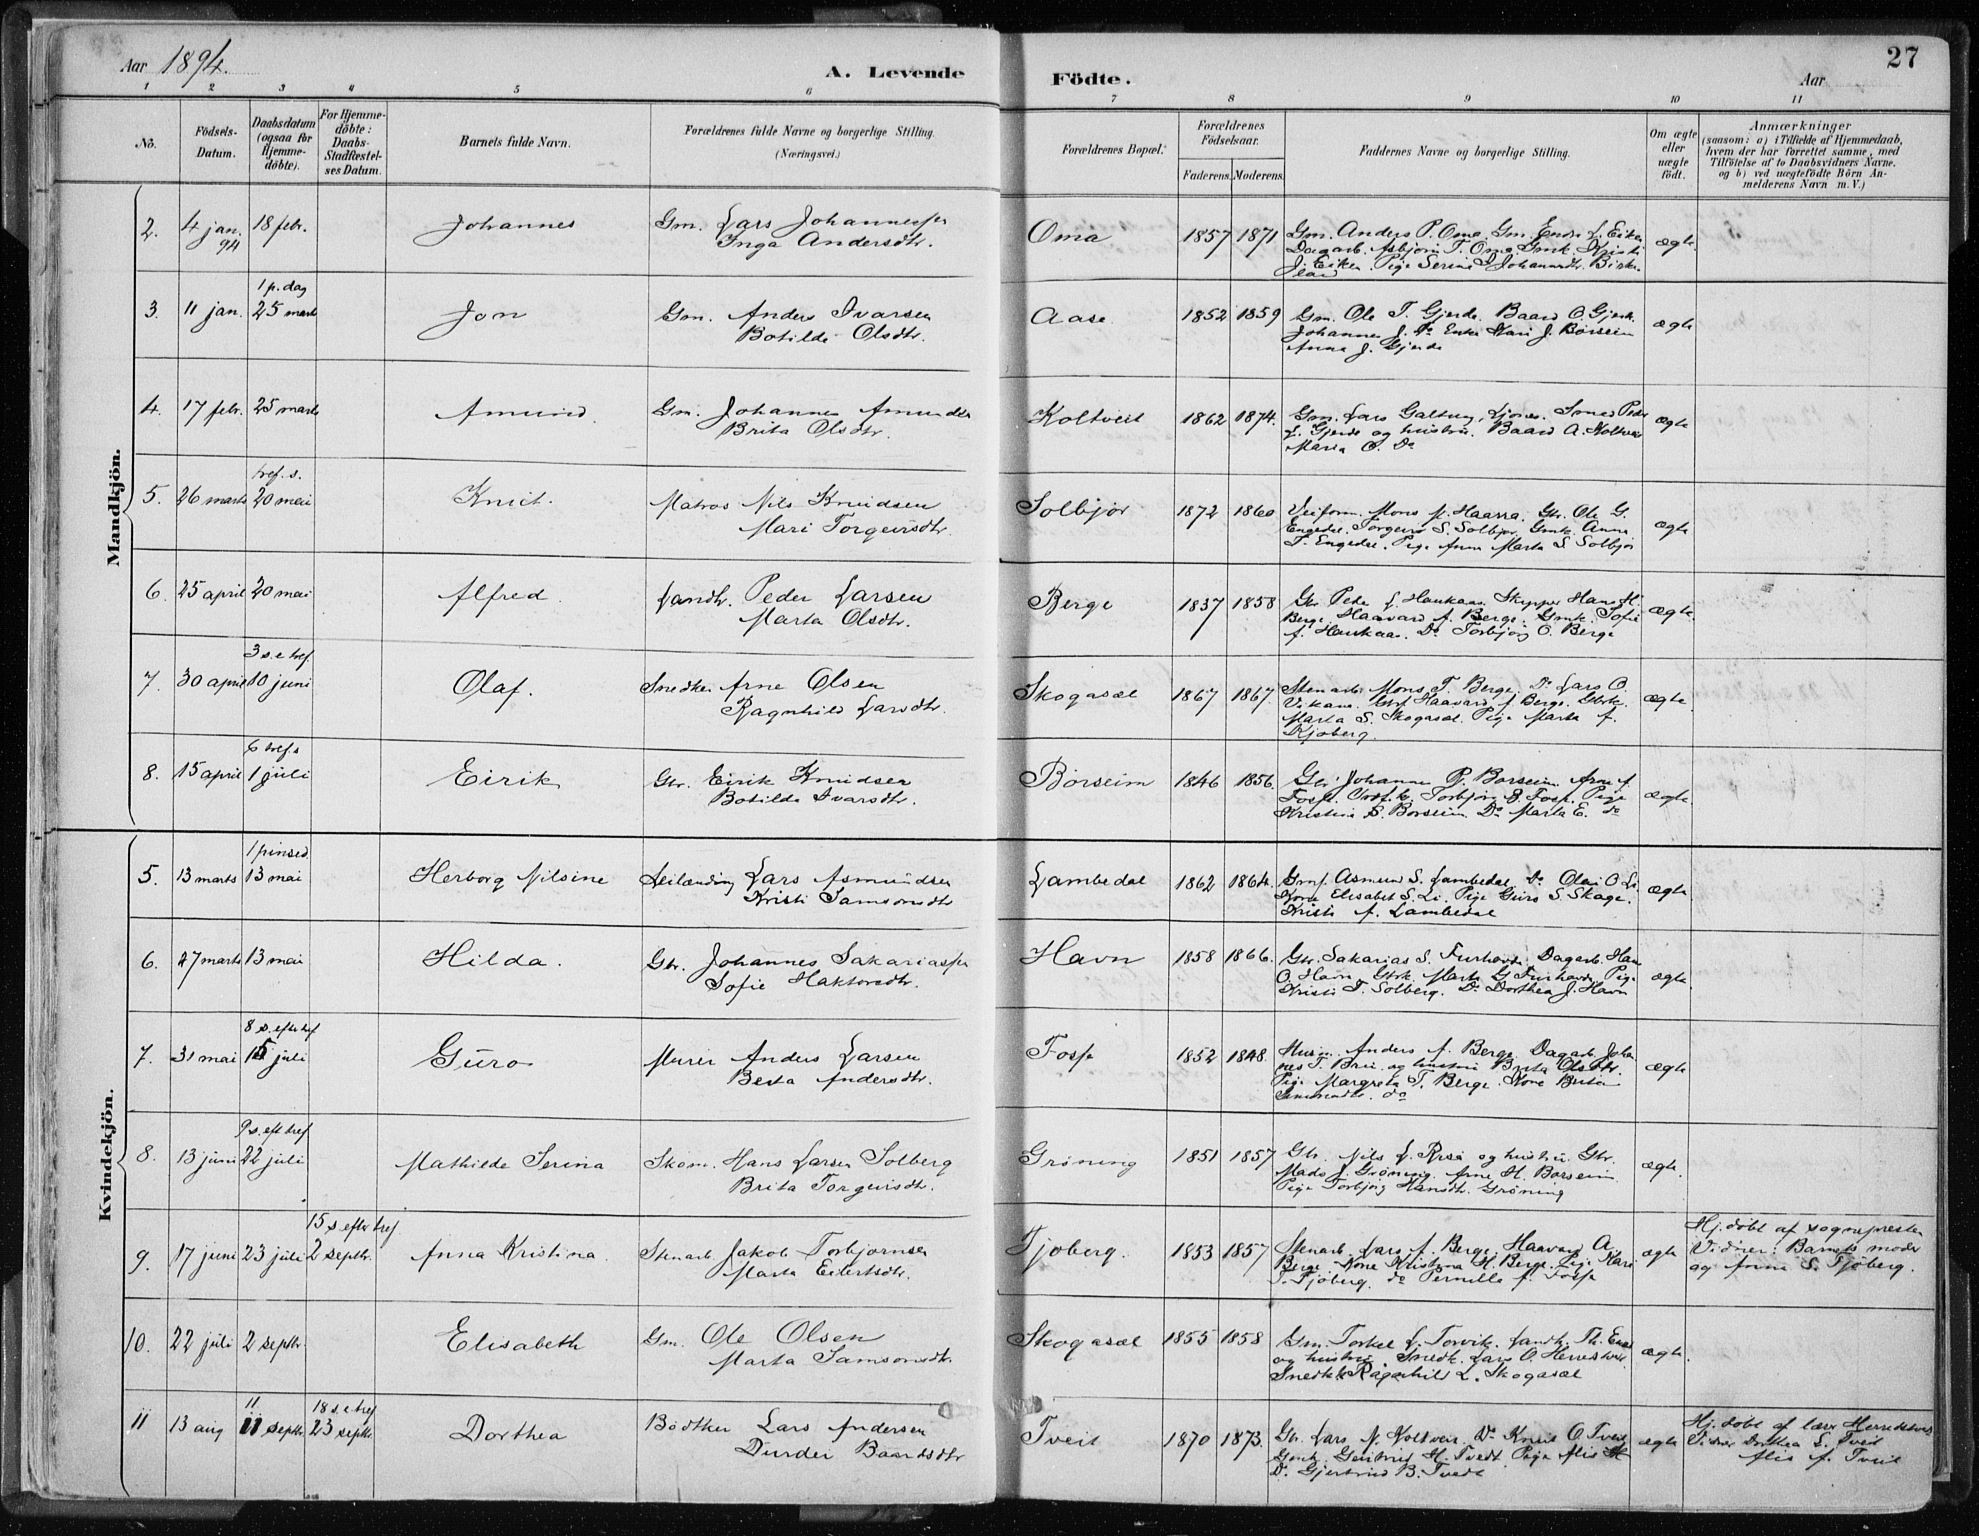 Aar 1894.
A. Levende Födte.
Aar
27
1 2 3 4 5 6 7 8 9 10 11
No.
Födsels-Datum.
Daabsdatum (ogsaa for Hjemmedöbte).
For Hjemmedöbte: Daabs-Stadfæstelses Datum.
Barnets fulde Navn.
Forældrenes fulde Navne og borgerlige Stilling. (Næringsvei.)
Forældrenes Bopæl.
Forældrenes Födselsaar.
Faderens. Moderens.
Faddernes Navne og borgerlige Stilling.
Om ægte eller uægte födt.
Anmærkninger
(saasom: a) i Tilfælde af Hjemmedaab, hvem der har forrettet samme, med Tilföielse af to Daabsvidners Navne, og b) ved uægtefödte Börn Anmelderens Navn m. V.)
Mandkjön.
2. 4 jan. 94 18 febr. Johannes Gm. Lars Johannesser
Inga Andersdtr. Oma 1857 1871 Gm. Anders P. Oma. Gm. Endr L. Eiken
Dagarb. Asbjörn T. Oma. Gmk. Kristi
J. Eiken. Pige Serine J. Johannesdtr. Birke
land ægte
3. 11 jan. 1 p. dag
25 marts Jon Gm. Anders Ivarsen
Botilde Olsdtr. Aase 1852 1859 Gm. Ole T. Gjerde. Baard O. Gjerde
Johannes J. Do Enke Kari J. Börseim
Anna J. Gjerde ægte
4. 17 febr. 25 marts Amund. Gm. Johannes Amundsen
Brita Olsdtr. Koltveit 1862 1874. Gm. Lars Galtung, Ljones. Smed Peder
L. Gjerde og hustru. Baard A. Koltveit
Maria O. Do ægte
5. 26 marts tref. s.
20 mai Knut. Matros Nils Knudsen
Mari Torgeirsdtr. Solbjör 1872 1860 Veiform. Mons N. Haarra. Gbr. Ole G.
Engedal. Torgeir S. Solbjör. Gmk. Anna
T. Engedal. Pige Anna Marta S. Solbjör ægte
6. 25 april 20 mai Alfred. Landh. Peder Larsen
Marta Olsdtr. Berge 1837 1858 Gbr Peder L. Haukaas. Skipper Hans H.
Berge. Haavard A. Berge. Gmk. Sofie
A. Haukaas. Do Torbjörg O. Berge ægte.
7. 30 april 3 s. e tref
10 juni Olaf. Snedker Arne Olsen
Ragnhild Larsdtr. Skogasæl 1867 1867. Stenarb. Mons T. Berge. Do Lars O.
Vikane. Haavard A. Berge. Gbrk.
Marta S. Skogasæl. Pige Marta A.
Kjöberg. ægte.
8. 15 april 6 tref. s
1 juli Eirik Gbr. Eirik Knudsen
Botilde Ivarsdtr. Börseim 1846 1856. Gbr Johannes P. Börseim. Arne A.
Fosse. Torbjörg S. Fosse. Pige
Kristine S. Börseim. Do Marta E. do ægte.
Kvindekjön.
5. 13 marts 1 pinsed.
13 mai Herborg Nilsine Leilænding Lars Asmundsen
Kristi Samsonsdtr Lambedal 1862 1864. Asmund S. Lambedal. Do Olai O. Li
Kone Elisabet S. Li. Pige Guro S. Skage.
Kristi A. Lambedal ægte
6. 27 marts 13 mai Hilda. Gbr. Johannes Sakariassen
Sofie Haktorsdtr. Havn 1858 1866. Gbr. Sakarias S. Furhovde. Dagarb. Hans
O. Havn. Gbrk Marta G. Furhovde. Pige
Kristi T. Solberg. Do Dorthea J. Havn ægte.
7. 31 mai 8 s. efter tref
15 juli Guro Murer Anders Larsen
Berta Andersdtr. Fosse 1852 1848. Husm. Anders A. Berge. Dagarb. Johan
nes T. Brei og hustru Brita Olsdtr.
Pige Margreta T. Berge. Kone Berta
Simonsdtr. do ægte
8. 13 juni 9 s. eft tref
22 juli Mathilde Serina Skom. Hans Larsen Solberg
Brita Torgeirsdtr. Gröning 1851 1857 Gbr. Nils L. Röse og hustru. Gbr.
Mads J. Gröning. Arne H. Börseim.
Pige Torbjörg Hansdtr. Gröning ægte.
9. 17 juni 23 juli 15 s. efter tref
2 septbr. Anna Kristina. Stenarb. Jakob Torbjörnsen
Marta Eilertsdtr. Fjöberg. 1853 1857 Stenarb. Lars A. Berge. Haavard A.
Berge. Kone Kristina H. Berge. Pige Kari
T. Fjöberg. do Pernille A. Fosse ægte Hj. döbt af sognepresten
Vidner: Barnets moder
og Anna S. Fjöberg.
10. 22 juli 2 septbr. Elisabeth Gm. Ole Olsen
Marta Samsonsdtr. Skogasæl 1855 1858 Gm. Torkel L. Torvik. Landh. Th. Enes
og hustru. Snedk. Lars O. Herrestveit
Snedkk. Ragnhild L. Skogasæl ægte.
11 13 aug 11 septbr. 18 s. e tref
23 septbr. Dorthea Bödtker Lars Andersen
Durdei Baardsdtr Tveit 1870 1873. Gbr. Lars N. Koltveit. Do Knut O. Tveit
Gmk. Gertrud H. Tvedt. Pige Alis H
Do. Gjertrud B. Tvedt ægte Hj. döbt af lær. Herrestveit
Vidner Dorthea L. Tveit
Alis A. Tveit